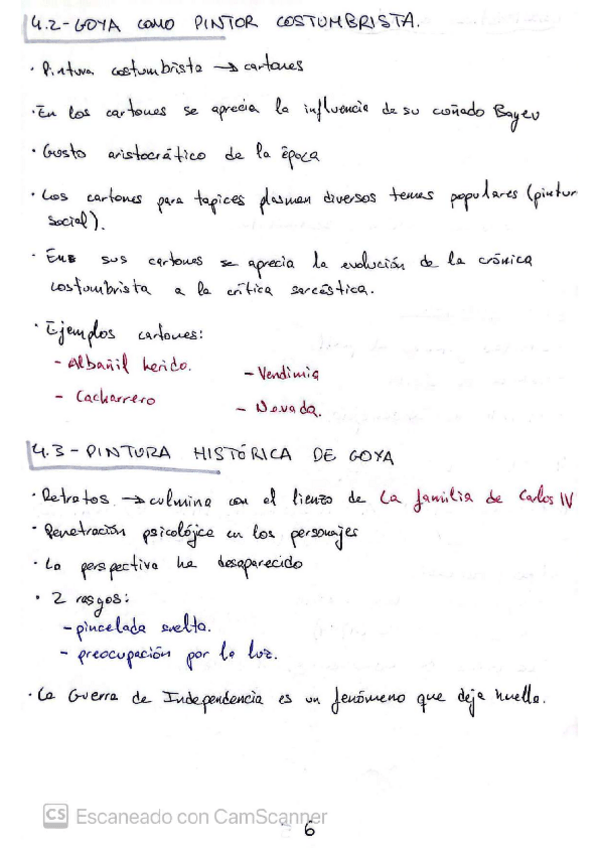 4.2- GOYA COMO PINTOR COSTUMBRISTA.
· Pintura costumbrista → cartones
· En los cartones se aprecia la influencia de su cuñado Bayeu
· Gusto aristocrático de la época
· Los cartones para tapices plasman diversos temas populares (pintur
social).
· En sus cartones se aprecia la evolución de la crónica
costumbrista a la crítica sarcástica.
· Ejemplos cartones:
- Albañil herido.
- Vendimia
- Cacharrero
- Nevada.
4.3- PINTURA HISTÓRICA DE GOYA
· Retratos → culmina con el lienzo de La familia de Carlos IV
· Penetración psicolójica en los personajes
· La perspectiva ha desaparecido
· 2 rasgos:
- pincelada suelta.
- preocupación por la luz.
· La Guerra de Independencia es un fenómeno que deja huella.
CS Escaneado con CamScanner
6